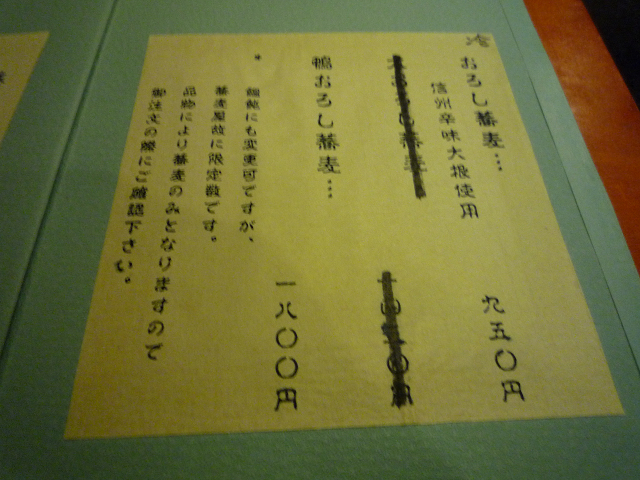 冷
おろし蕎麦… 九五〇円
信州辛味大根使用
鴨おろし蕎麦… 一八〇〇円
* 饂飩にも変更可ですが、
蕎麦屋故に限定数です。
品物により蕎麦のみとなりますので
御注文の際にご確認下さい。